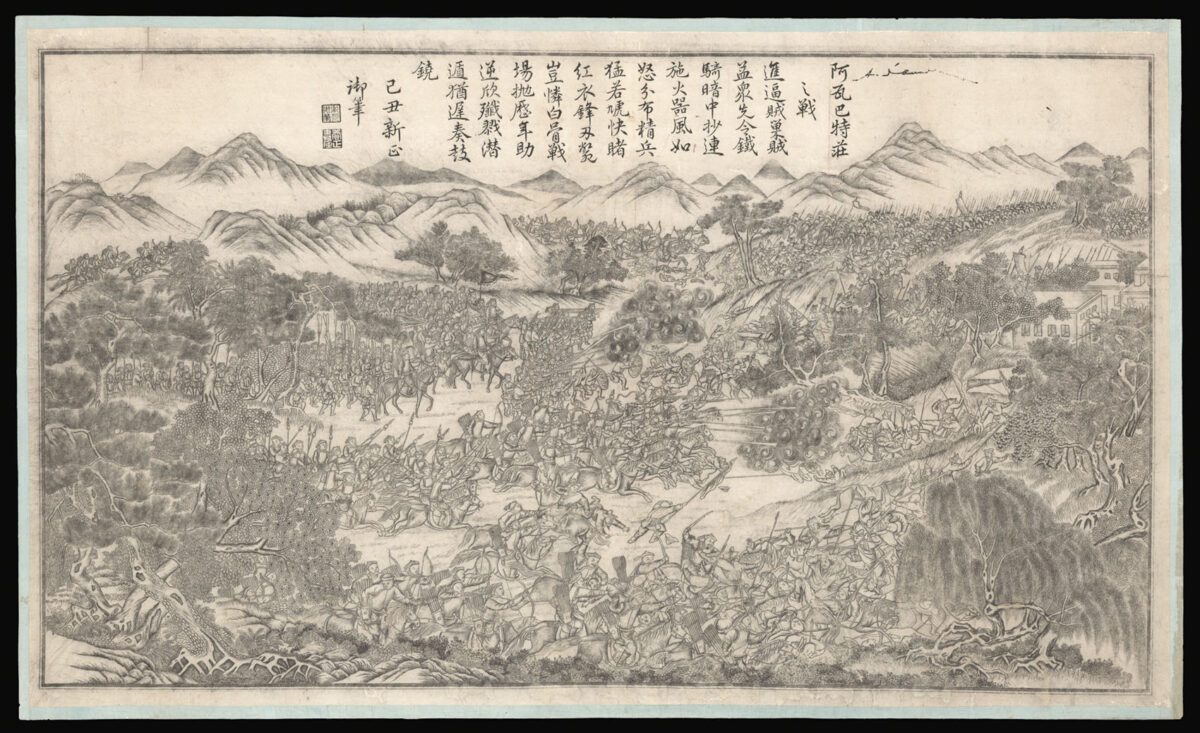 阿瓦巴特莊
之戰
進逼賊巢賊
益眾先令鐵
騎暗中抄連
施火器風如
怒分布精兵
猛若虓快睹
紅衣鋒刃斃
豈憐白骨戰
場拋歷年助
逆欣殲戮潛
遁猶遲奏鼓
鐃
己丑新正
御筆